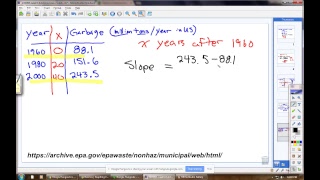 year x Garbage (millions tons/year in US)
1960 0 88.1
1980 20 151.6
2000 40 243.5
x years after 1960
Slope = 243.5-88.1
https://archive.epa.gov/epawaste/nonhaz/municipal/web/html/